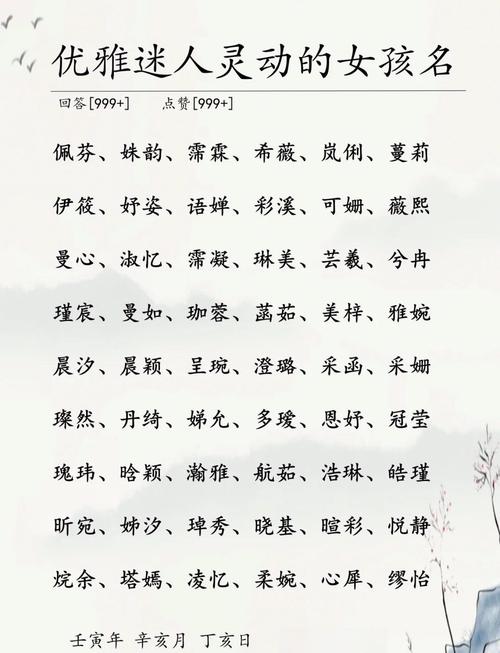 优雅迷人灵动的女孩名
回答[999+] 点赞[999+]
佩芬、姝韵、霈霖、希薇、岚俐、蔓莉
伊筱、妤姿、语婵、彩溪、可姗、薇熙
曼心、淑忆、霈凝、琳美、芸羲、兮冉
瑾宸、曼如、珈蓉、菡茹、美梓、雅婉
晨汐、晨颖、呈琬、澄璐、采函、采姗
璨然、丹绮、娣允、多瑷、恩妤、冠莹
瑰玮、晗颖、瀚雅、航茹、浩琳、皓瑾
昕宛、姊汐、琸秀、晓基、暄彩、悦静
烷余、塔嫣、凌忆、柔婉、心犀、缪怡
壬寅年 辛亥月 丁亥日